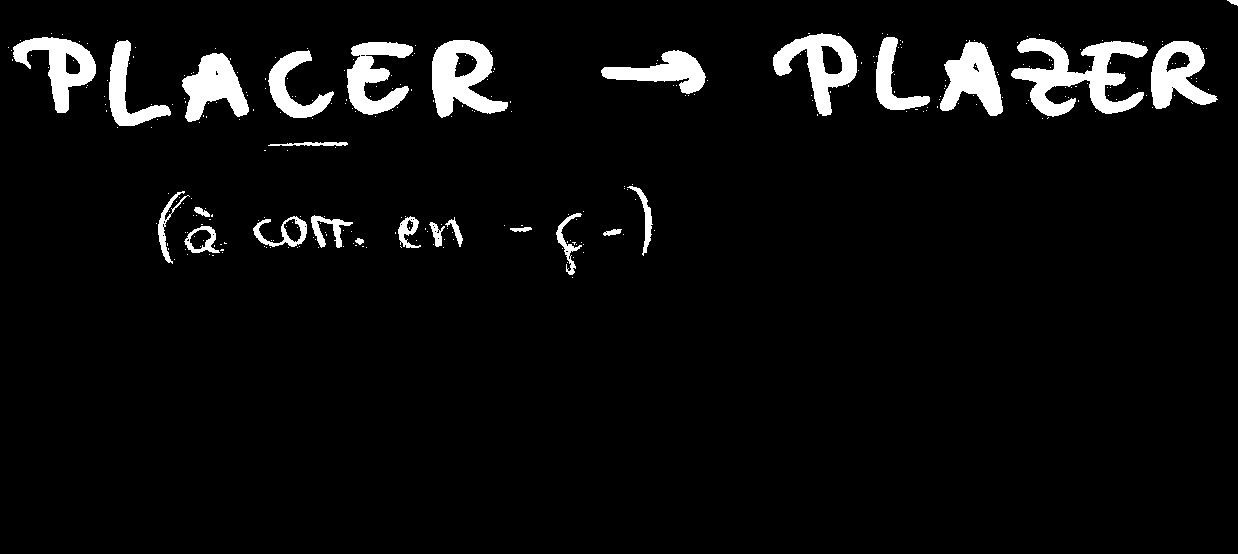 PLACER → PLAZER
(à corr. en - ç -)